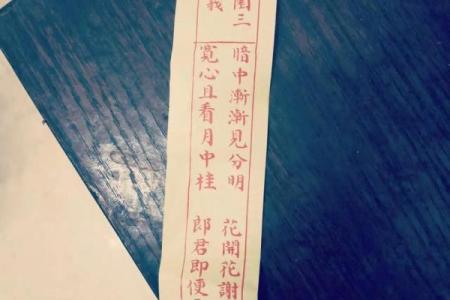 三
暗中漸漸見分明 花開花謝
寬心且看月中桂 郎君即便